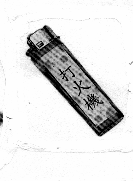 打火機